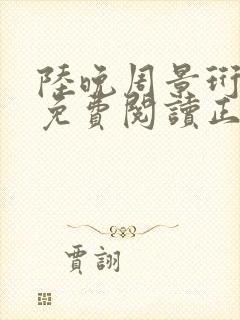 陸晚周景珩
免費閱讀正
賈詡